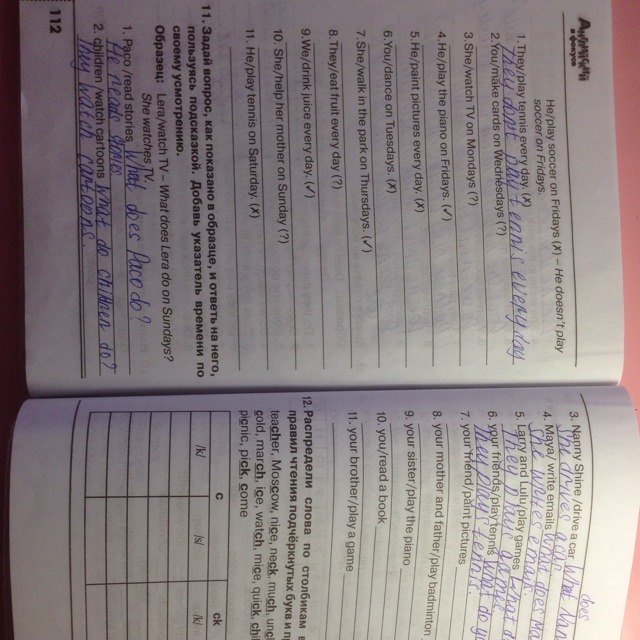 Английский
в фокусе
He/play soccer on Fridays (X) – He doesn't play
soccer on Fridays.
1.They/play tennis every day. (X)
They don't play tennis every day
2.You/make cards on Wednesdays (?)
3.She/watch TV on Mondays (?)
4.He/play the piano on Fridays. (✓)
5.He/paint pictures every day. (X)
6.You/dance on Tuesdays. (X)
7.She/walk in the park on Thursdays. (✓)
8.They/eat fruit every day (?)
9.We/drink juice every day. (✓)
10. She/help her mother on Sunday (?)
11. He/play tennis on Saturday. (X)
11. Задай вопрос, как показано в образце, и ответь на него,
пользуясь подсказкой. Добавь указатель времени по
своему усмотрению.
Образец: Lera/watch TV – What does Lera do on Sundays?
She watches TV.
1. Paco /read stories What does Paco do?
He reads stories
2. children /watch cartoons What do children do?
They watch cartoons.
112
3. Nanny Shine /drive a car What does
She drives
4. Maya/ write emails What does
She
5. Larry and Lulu/play games What
They play games.
6. your friends/play tennis What do
They plays tennis.
7. your friend/paint pictures
8. your mother and father/play badminton
9. your sister/play the piano
10. you/read a book
11. your brother/play a game
12. Распредели слова по столбикам в
правил чтения подчёркнутых букв и
teacher, Moscow, nice, neck, much,
cold, march, ice, watch, mice, quick,
picnic, pick, come
c ck
/k/ /s/ /k/